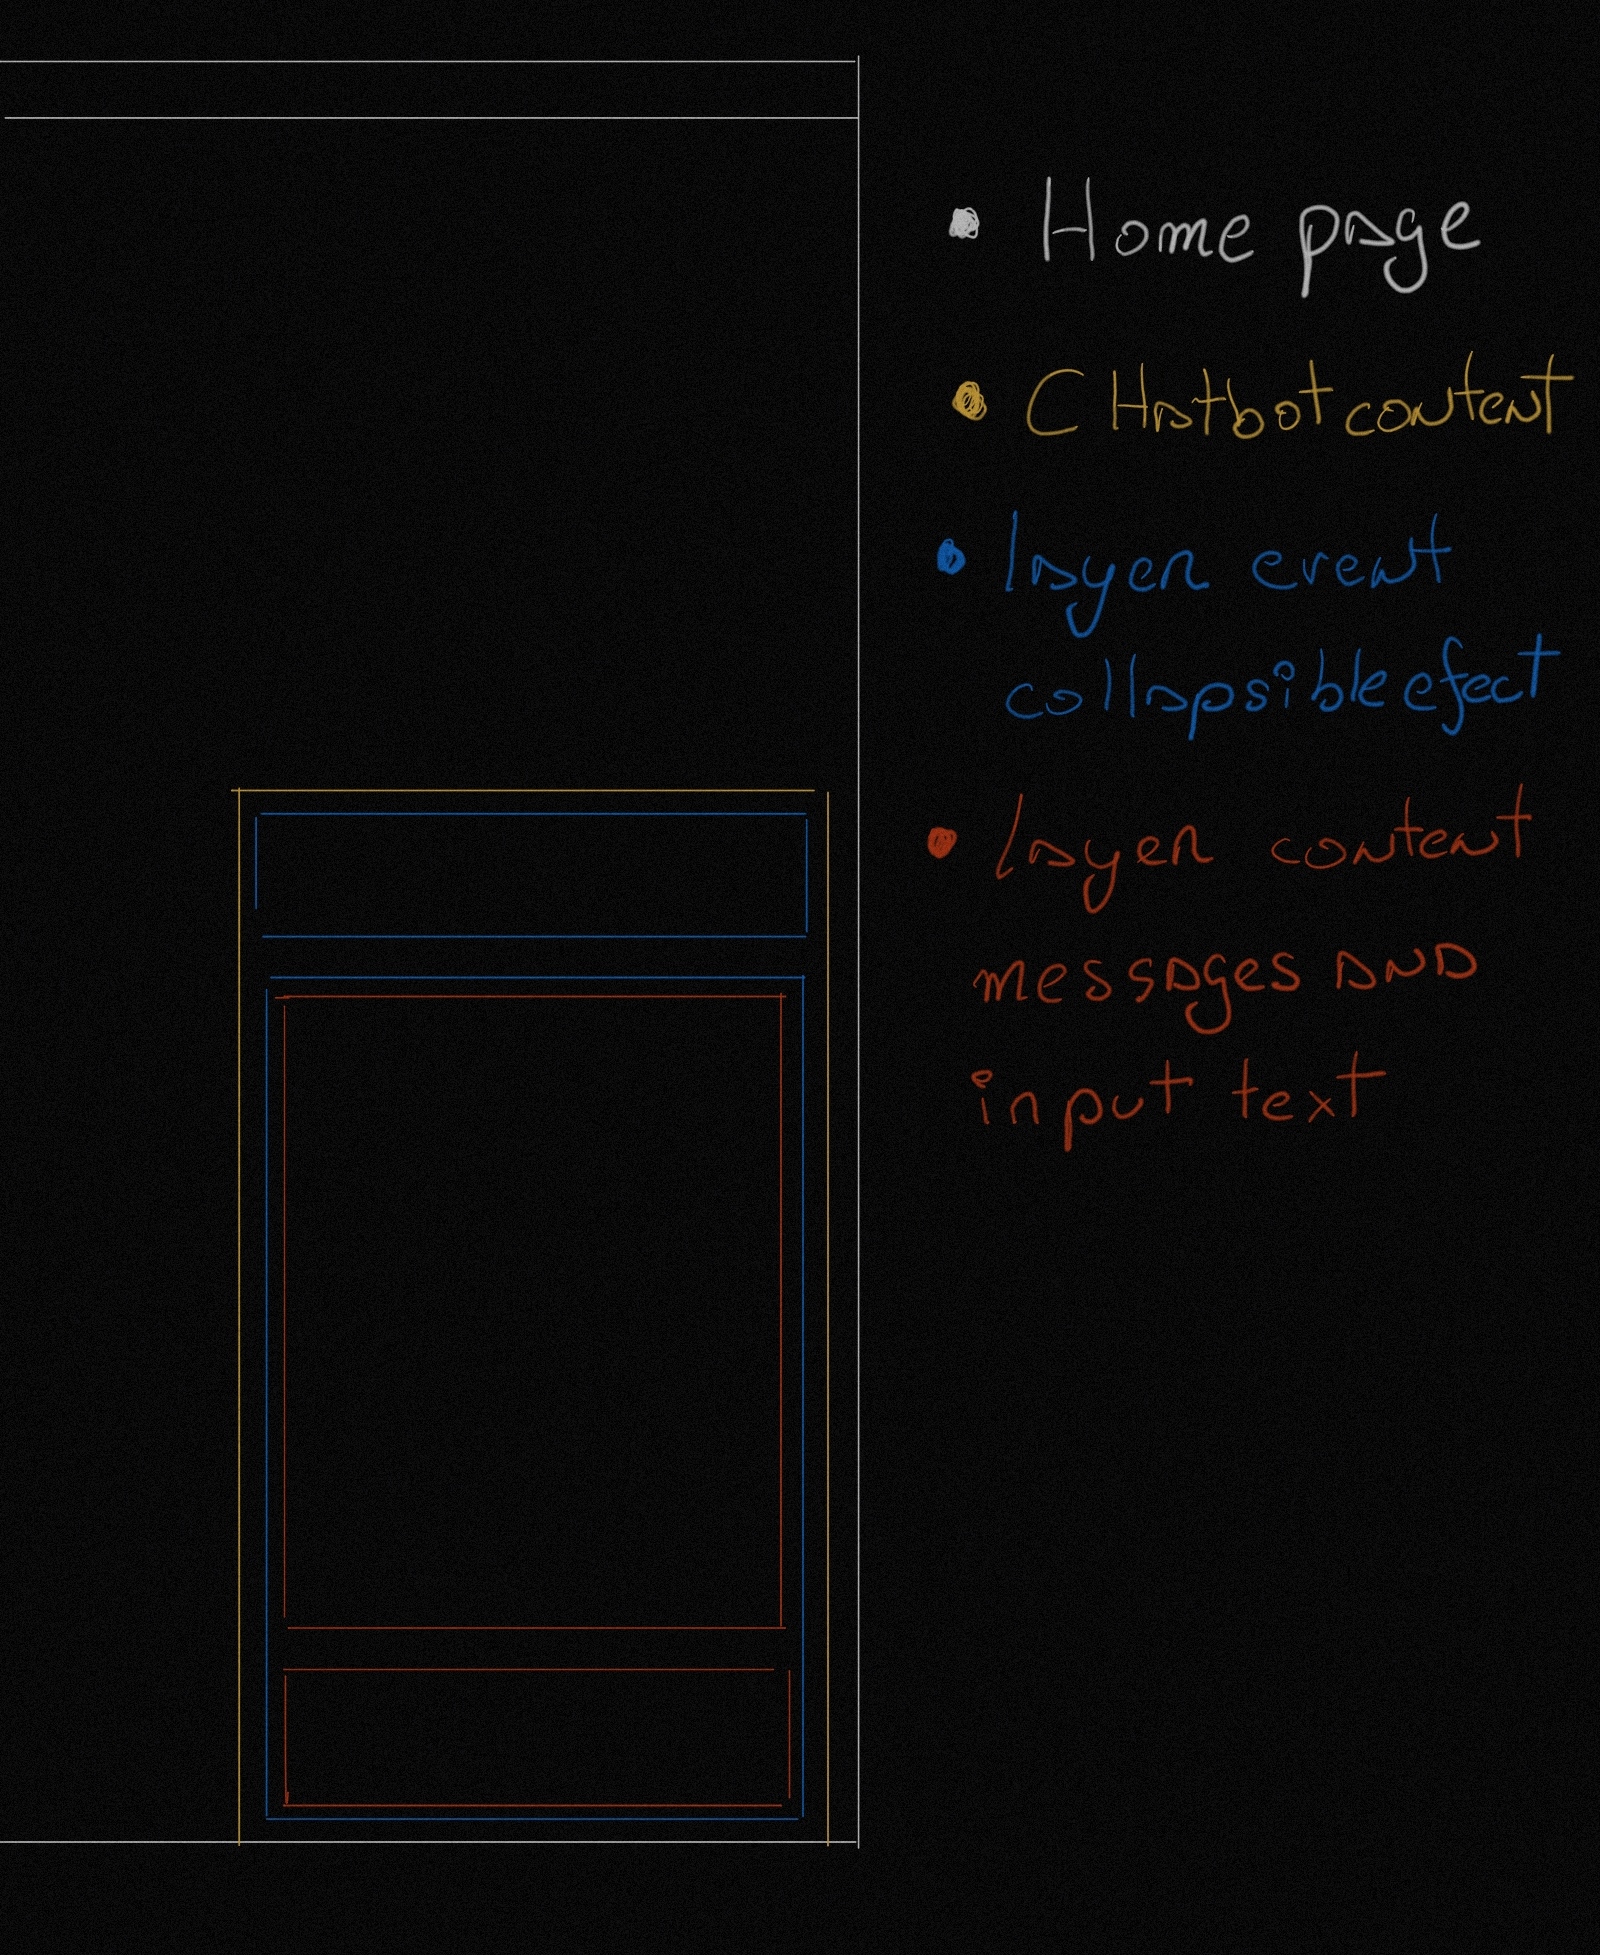 Home page
CHatbot content
layer event
collapsible efect
layer content
messages AND
input text